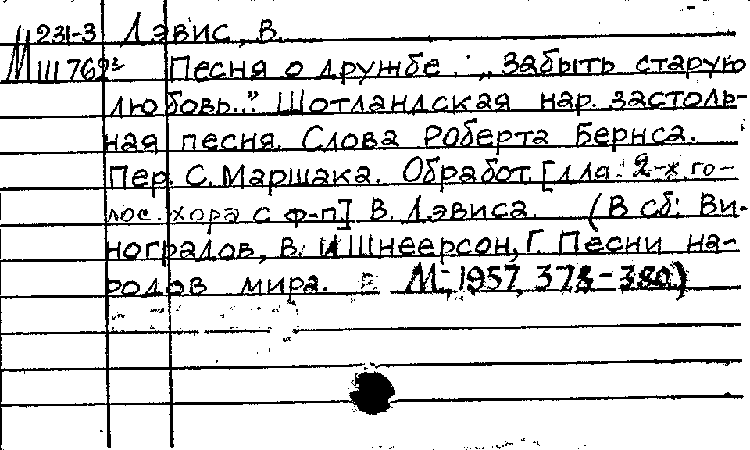 М 231-3 Лэвис, В.
Ш 762² Песня о дружбе: „Забыть старую
любовь..." Шотландская нар. застоль-
ная песня. Слова Роберта Бернса.
Пер. С. Маршака. Обработ. [для 2-х го-
лос. хора с ф-п] В. Лэвиса. (В сб: Ви-
ноградов, В. и Шнеерсон, Г. Песни на-
родов мира. М., 1957, 378-380.)